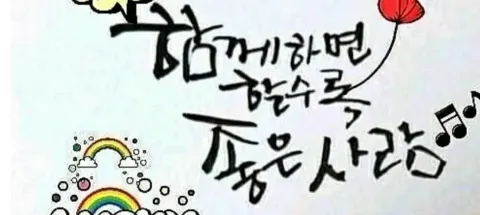 함께하면
할수록
좋은 사람